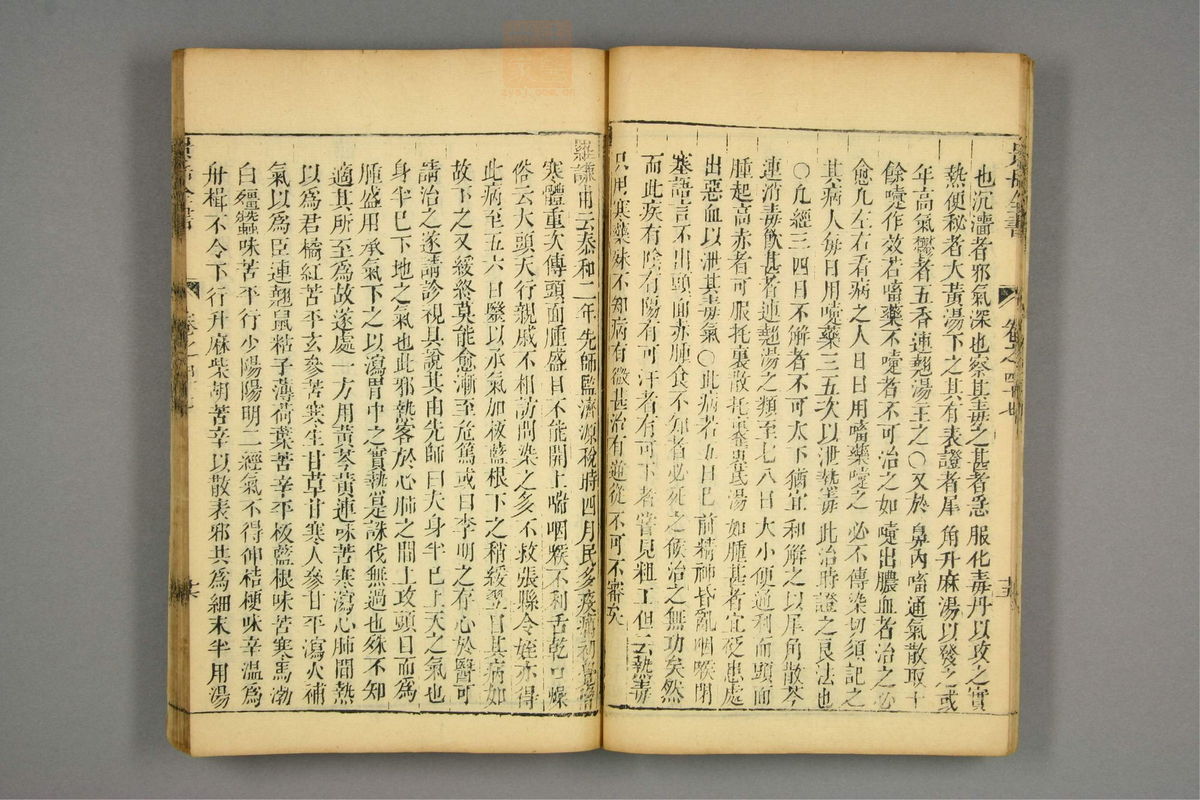 也沉濇者邪氣深也察其毒之甚者急服化毒丹以攻之實
熱便秘者大黃湯下之其有表證者犀角升麻湯以發之或
年高氣鬱者五香連翹湯主之○又於鼻內㗜通氣散取十
餘嚏作效若㗜藥不嚏者不可治之如嚏出膿血者治之必
愈凡左右看病之人日日用㗜藥嚏之必不傳染切須記之
其病人每日用嚏藥三五次以泄熱毒此治時證之良法也
○凡經三四日不解者不可太下猶宜和解之以犀角散芩
連消毒飲甚者連翹湯之類至七八日大小便通利而頭面
腫起高赤者可服托裏散托裏黃芪湯如腫甚者宜砭患處
出惡血以泄其毒氣○此病若五日已前精神昏亂咽喉閉
塞語言不出頭面亦腫食不知者必死之候治之無功矣然
而此疾有陰有陽有可汗者有可下者嘗見粗工但云熱毒
只用寒藥殊不知病有微甚治有逆從不可不審矣
羅謙甫云泰和二年先師監濟源稅時四月民多疫癘初覺憎
寒體重次傳頭面腫盛目不能開上喘咽喉不利舌乾口燥
俗云大頭天行親戚不相訪問染之多不救張縣令姪亦得
此病至五六日醫以承氣加板藍根下之稍緩翌日其病如
故下之又緩終莫能愈漸至危篤或曰李明之存心於醫可
請治之遂請診視具說其由先師曰夫身半已上天之氣也
身半已下地之氣也此邪熱客於心肺之間上攻頭目而爲
腫盛用承氣下之以瀉胃中之實熱是誅伐無過也殊不知
適其所至爲故遂處一方用黃芩黃連味苦寒瀉心肺間熱
以爲君橘紅苦平玄參苦寒生甘草甘寒人參甘平瀉火補
氣以爲臣連翹鼠粘子薄荷葉苦辛平板藍根味苦寒馬渤
白殭蠶味苦平行少陽陽明二經氣不得伸桔梗味辛溫爲
舟楫不令下行升麻柴胡苦辛以散表邪共爲細末半用湯